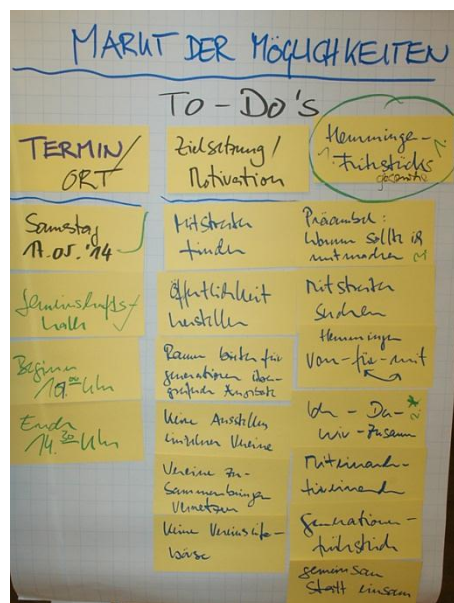 MARKT DER MÖGLICHKEITEN
TO-DO'S
TERMIN/
ORT
Samstag
17.05.'14
Gemeinschafts-
halle
Beginn
10.00 Uhr
Ende
14.30 Uhr
Zielsetzung/
Motivation
Mitstreiter
finden
Öffentlichkeit
herstellen
Raum bieten für
generationen über-
greifende
Keine Ausstellung
einzelner Vereine
Vereine zu-
sammenbringen
Vernetzen
Keine Vereinsinfo-
börse
Hemminger-
Frühstücks
Präambel:
Warum sollte ich
mitmachen
Mitstreiter
suchen
Hemmingen
von-für-mit
Ich - Du -
wir - Zusammen
Miteinander-
füreinander
Generationen-
frühstück
gemeinsam
statt einsam